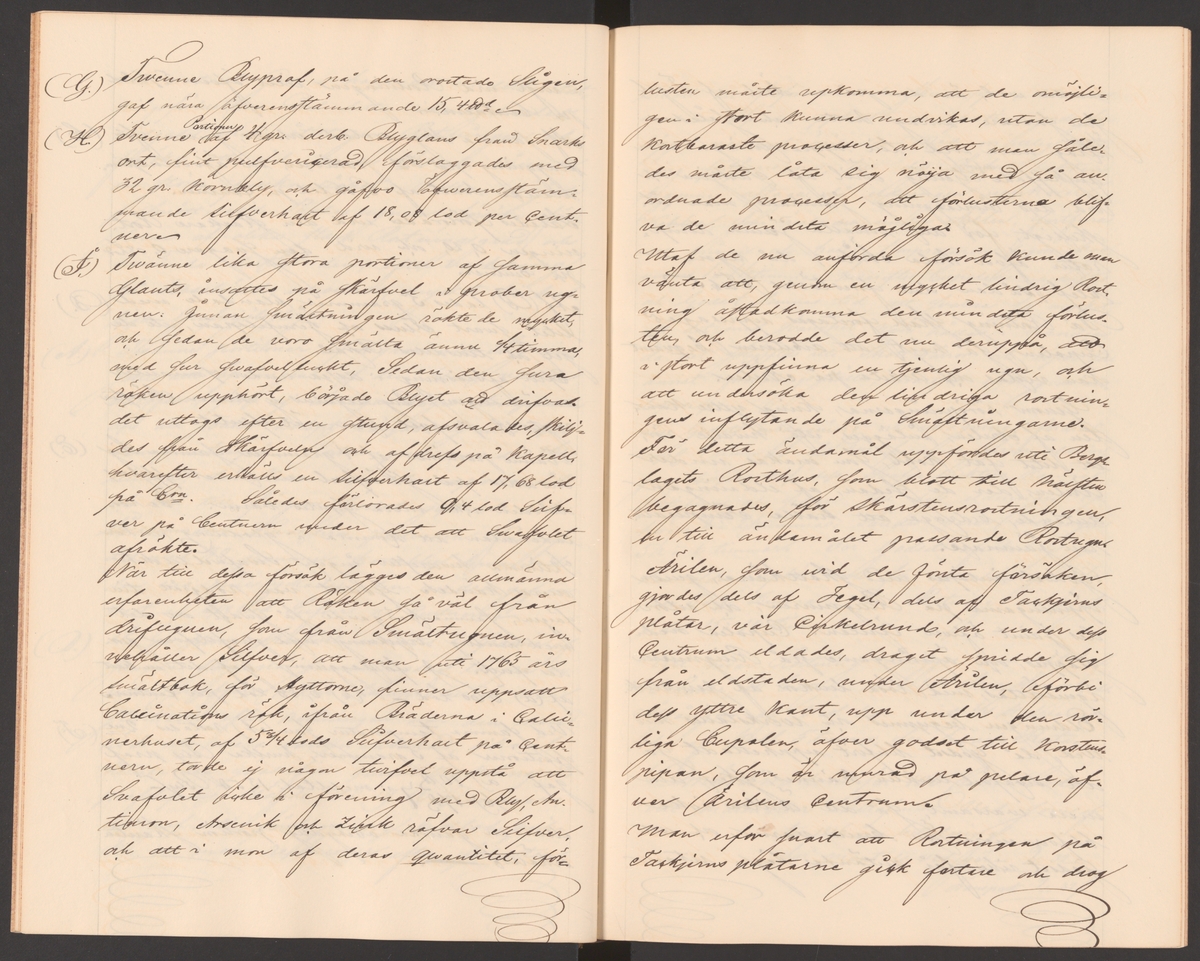 G.) Tvenne Blyprof, på den rostade Sligen,
gaf nära öfverensstämmande 15,4 lod.
H.) Tvenne Portioner af 4 gr. derb. Blyglans från Snarks
ort, fint pulfveriserad, förslaggades med
32 gr. Kornbly, och gåfvo öfwerensstäm-
mande silfverhalt af 18,08 lod per Cent-
ner.
I.) Twänne lika stora portioner af samma
Glants, insattes på skärfvel i prober ug-
nen: Innan smältningen rökte de mycket,
och sedan de voro smälta ännu 3/4 timma,
med sur swafvellucht, Sedan den sura
röken upphört, började Blyet att drifvas
det uttogs efter en stund, afsvalades, skilj-
des från Skärfveln och afdrefs på Kapell,
hvarefter erhålls en silfverhalt af 17,68 lod
på Ctn. Således förlorades 0,4 lod Silf-
ver på Centnern under det att Swaflet
afrökte.
När till dessa försök lägges den allmänna
erfarenheten att Röken så väl från
drifugnen, som från Smältugnen, in-
nehåller Silfver, att man uti 1765 års
smältbok, för Hyttorne, finner uppsatt
Calcinations rök, ifrån Bräderna i Calci-
nerhuset, af 5 3/4 lods Silfverhalt på Cent-
nern, torde ej någon tvifvel uppstå att
Svaflet icke i förening med Bly, An-
timon, Arsenik och Zink röfvar Silfver,
och att i mon af deras qwantitet, för-
lusten måste upkomma, att de omöjli-
gen i stort kunna undvikas, utan de
kostbaraste processer, och att man såle-
des måste låta sig nöija med så an-
ordnade processer, att förlusterna blif-
va de mindsta möjliga.
Utaf de nu anförda försök kunde man
vänta att, genom en mycket lindrig Rost-
ning åstadkomma den mindsta förlus-
ten, och berodde det nu deruppå, att
i stort uppfinna en tjenlig ugn, och
att undersöka den lindriga rostnin-
gens inflytande på Smältningarne.
För detta ändamål uppfördes uti Bergs
lagets Rosthus, som blott till hälften
begagnades, för Skärstensrostningen,
en till ändamålet passande Rostugn.
Ärilen, som wid de första försöken,
gjordes dels af Tegel, dels af Tackjerns
plåtar, var Cirkelrund, och under dess
Centrum eldades, draget spridde sig
från eldstaden, under Ärilen, förbi
dess yttre kant, upp under den rör-
liga Cupolen, äfver godset till Korstens-
pipan, som är murad på pelare, öf-
ver Ärilens Centrum.
Man erfor snart att Rostningen på
Tackjerns plåtarne gick fortare och drog